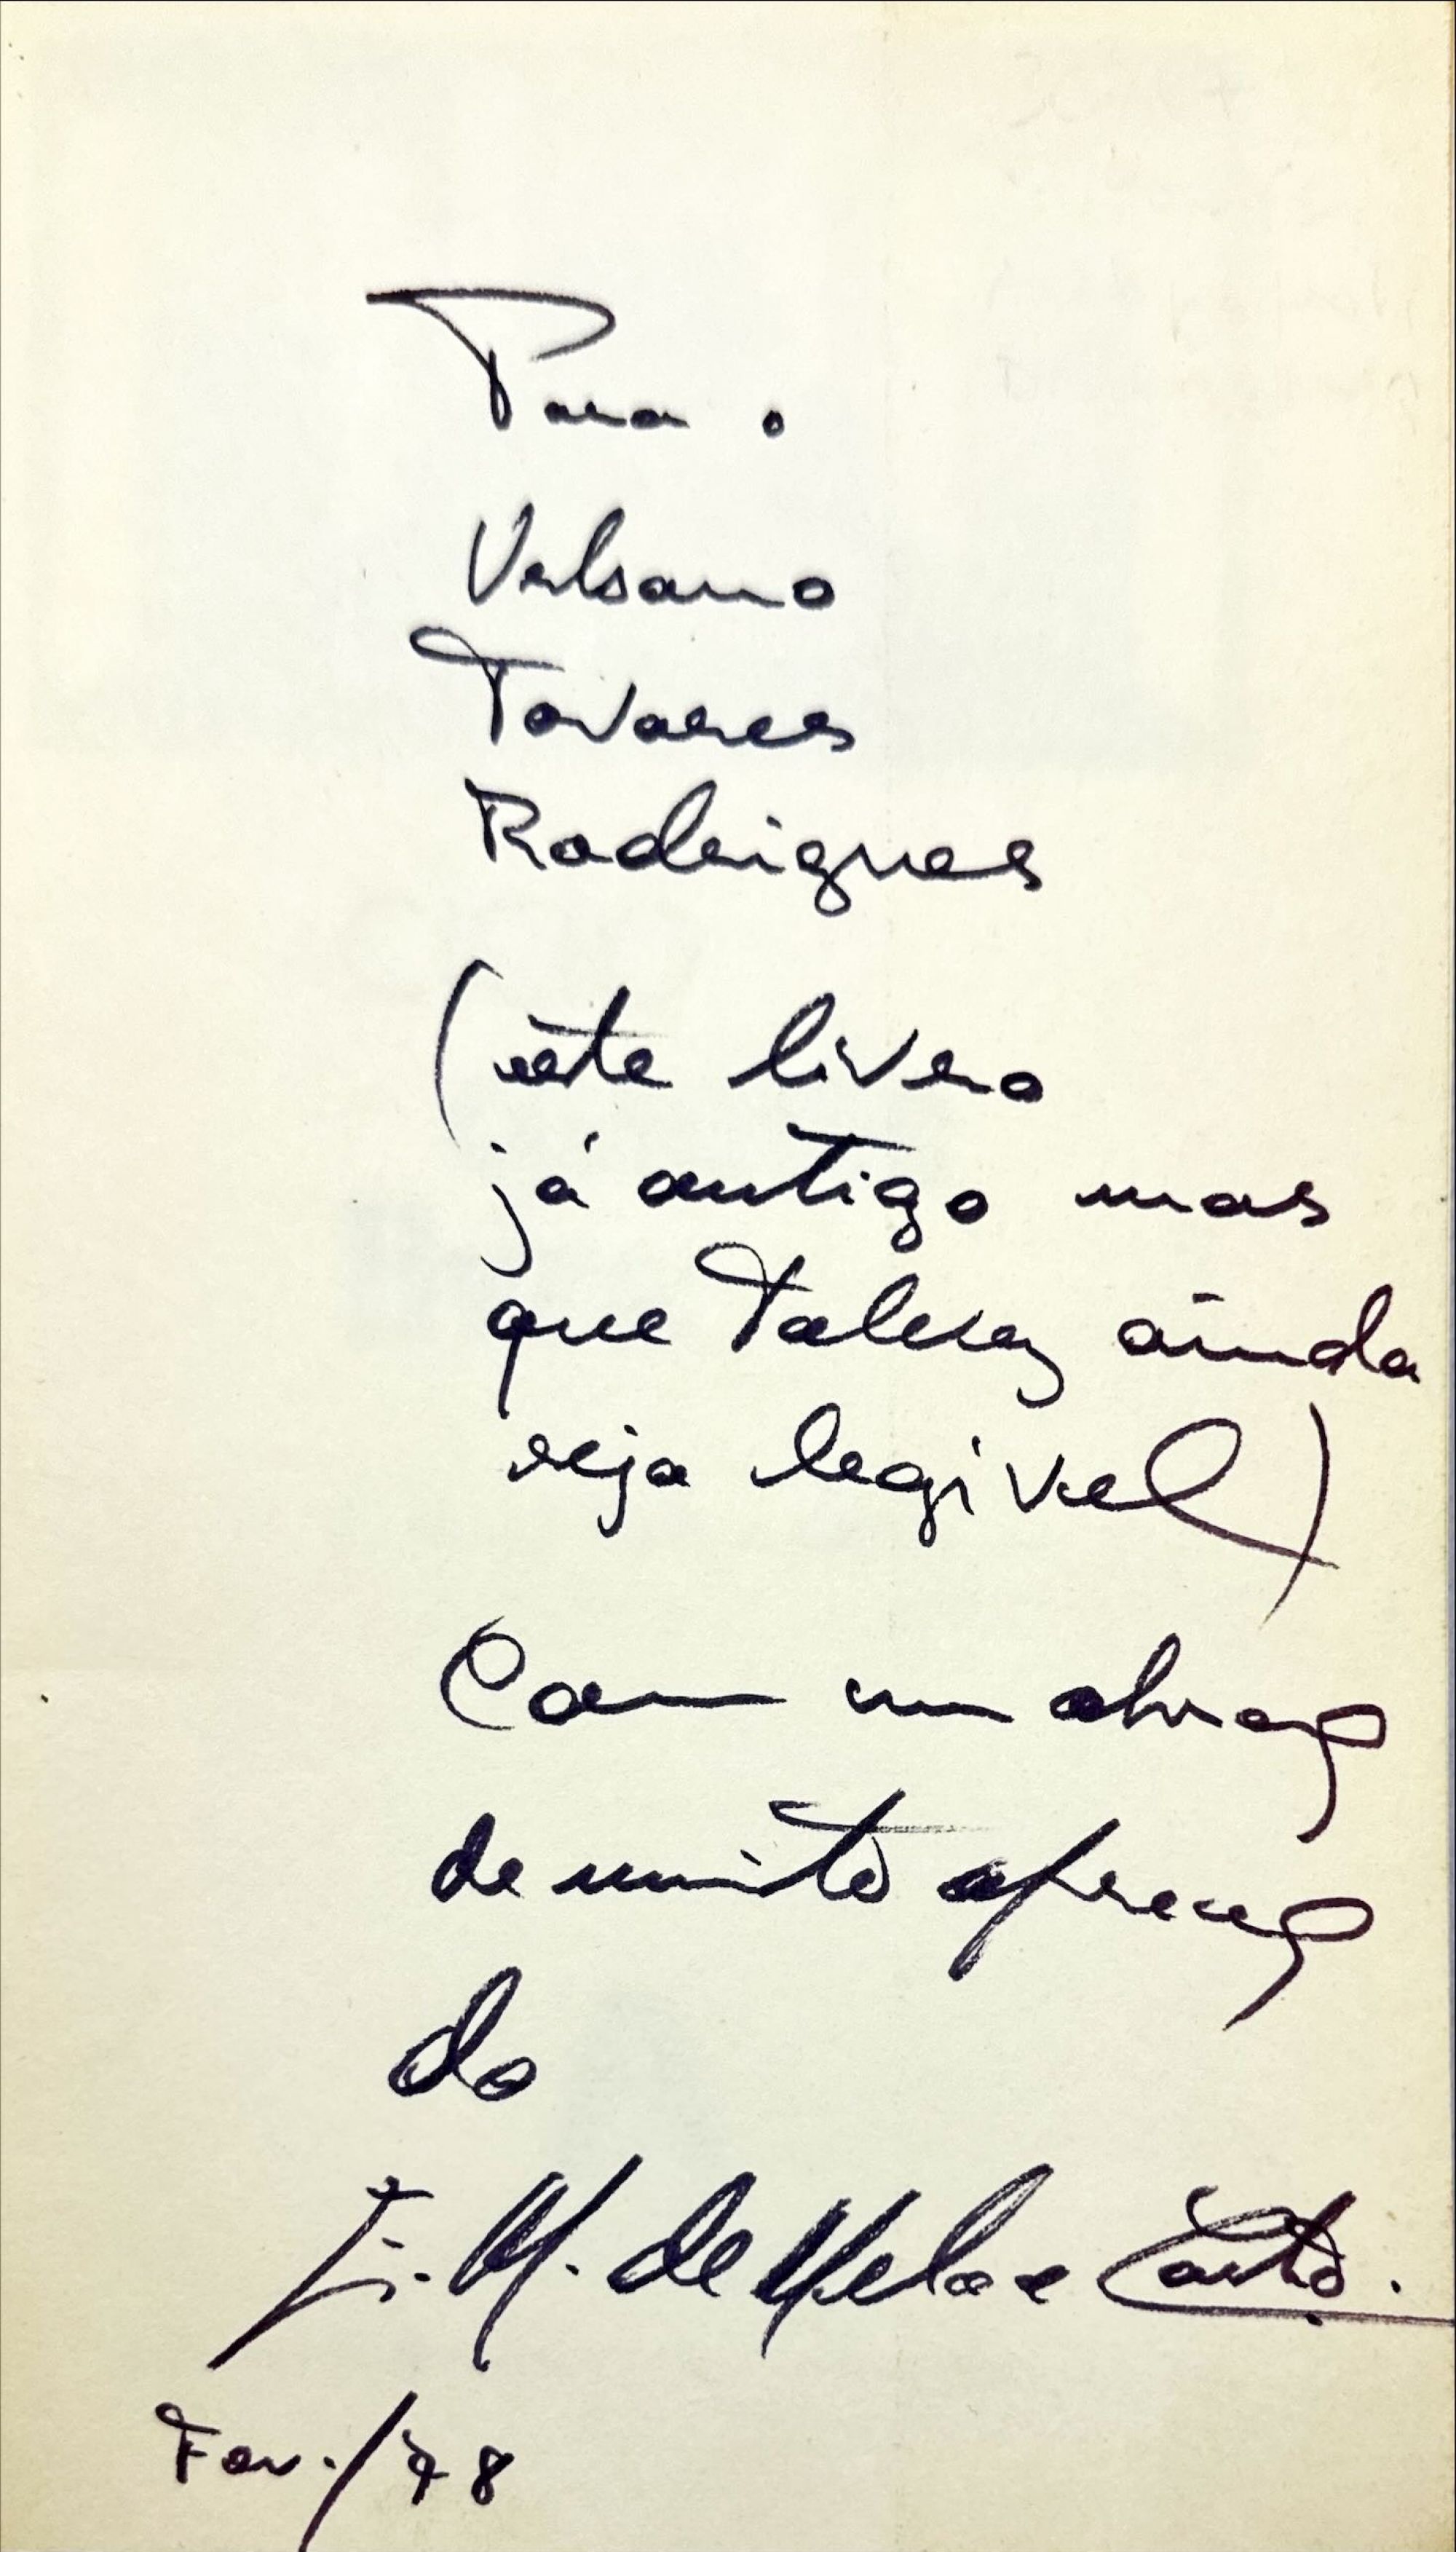 Para o
Urbano
Tavares
Rodrigues
(êste livro
já antigo mas
que talvez ainda
seja legivel)
Com um abraço
de muito apreço
do
E. M. de Melo e Castro.
Fev./78